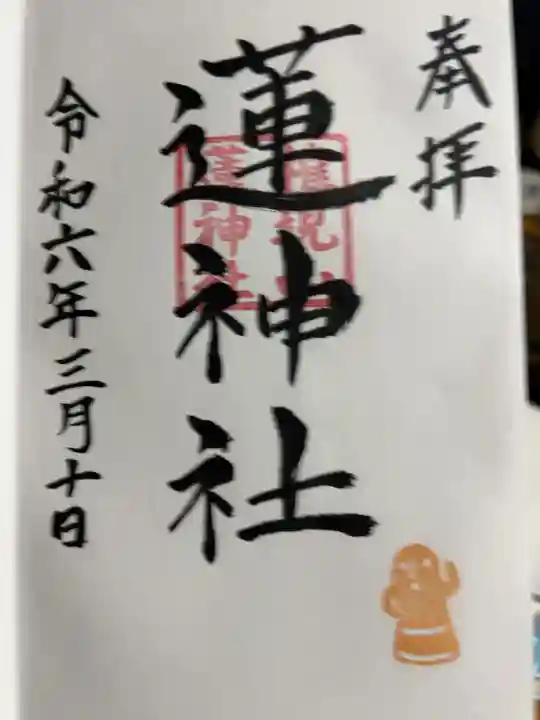 奉拝
蓮神社
蓮神社
令和六年三月十日